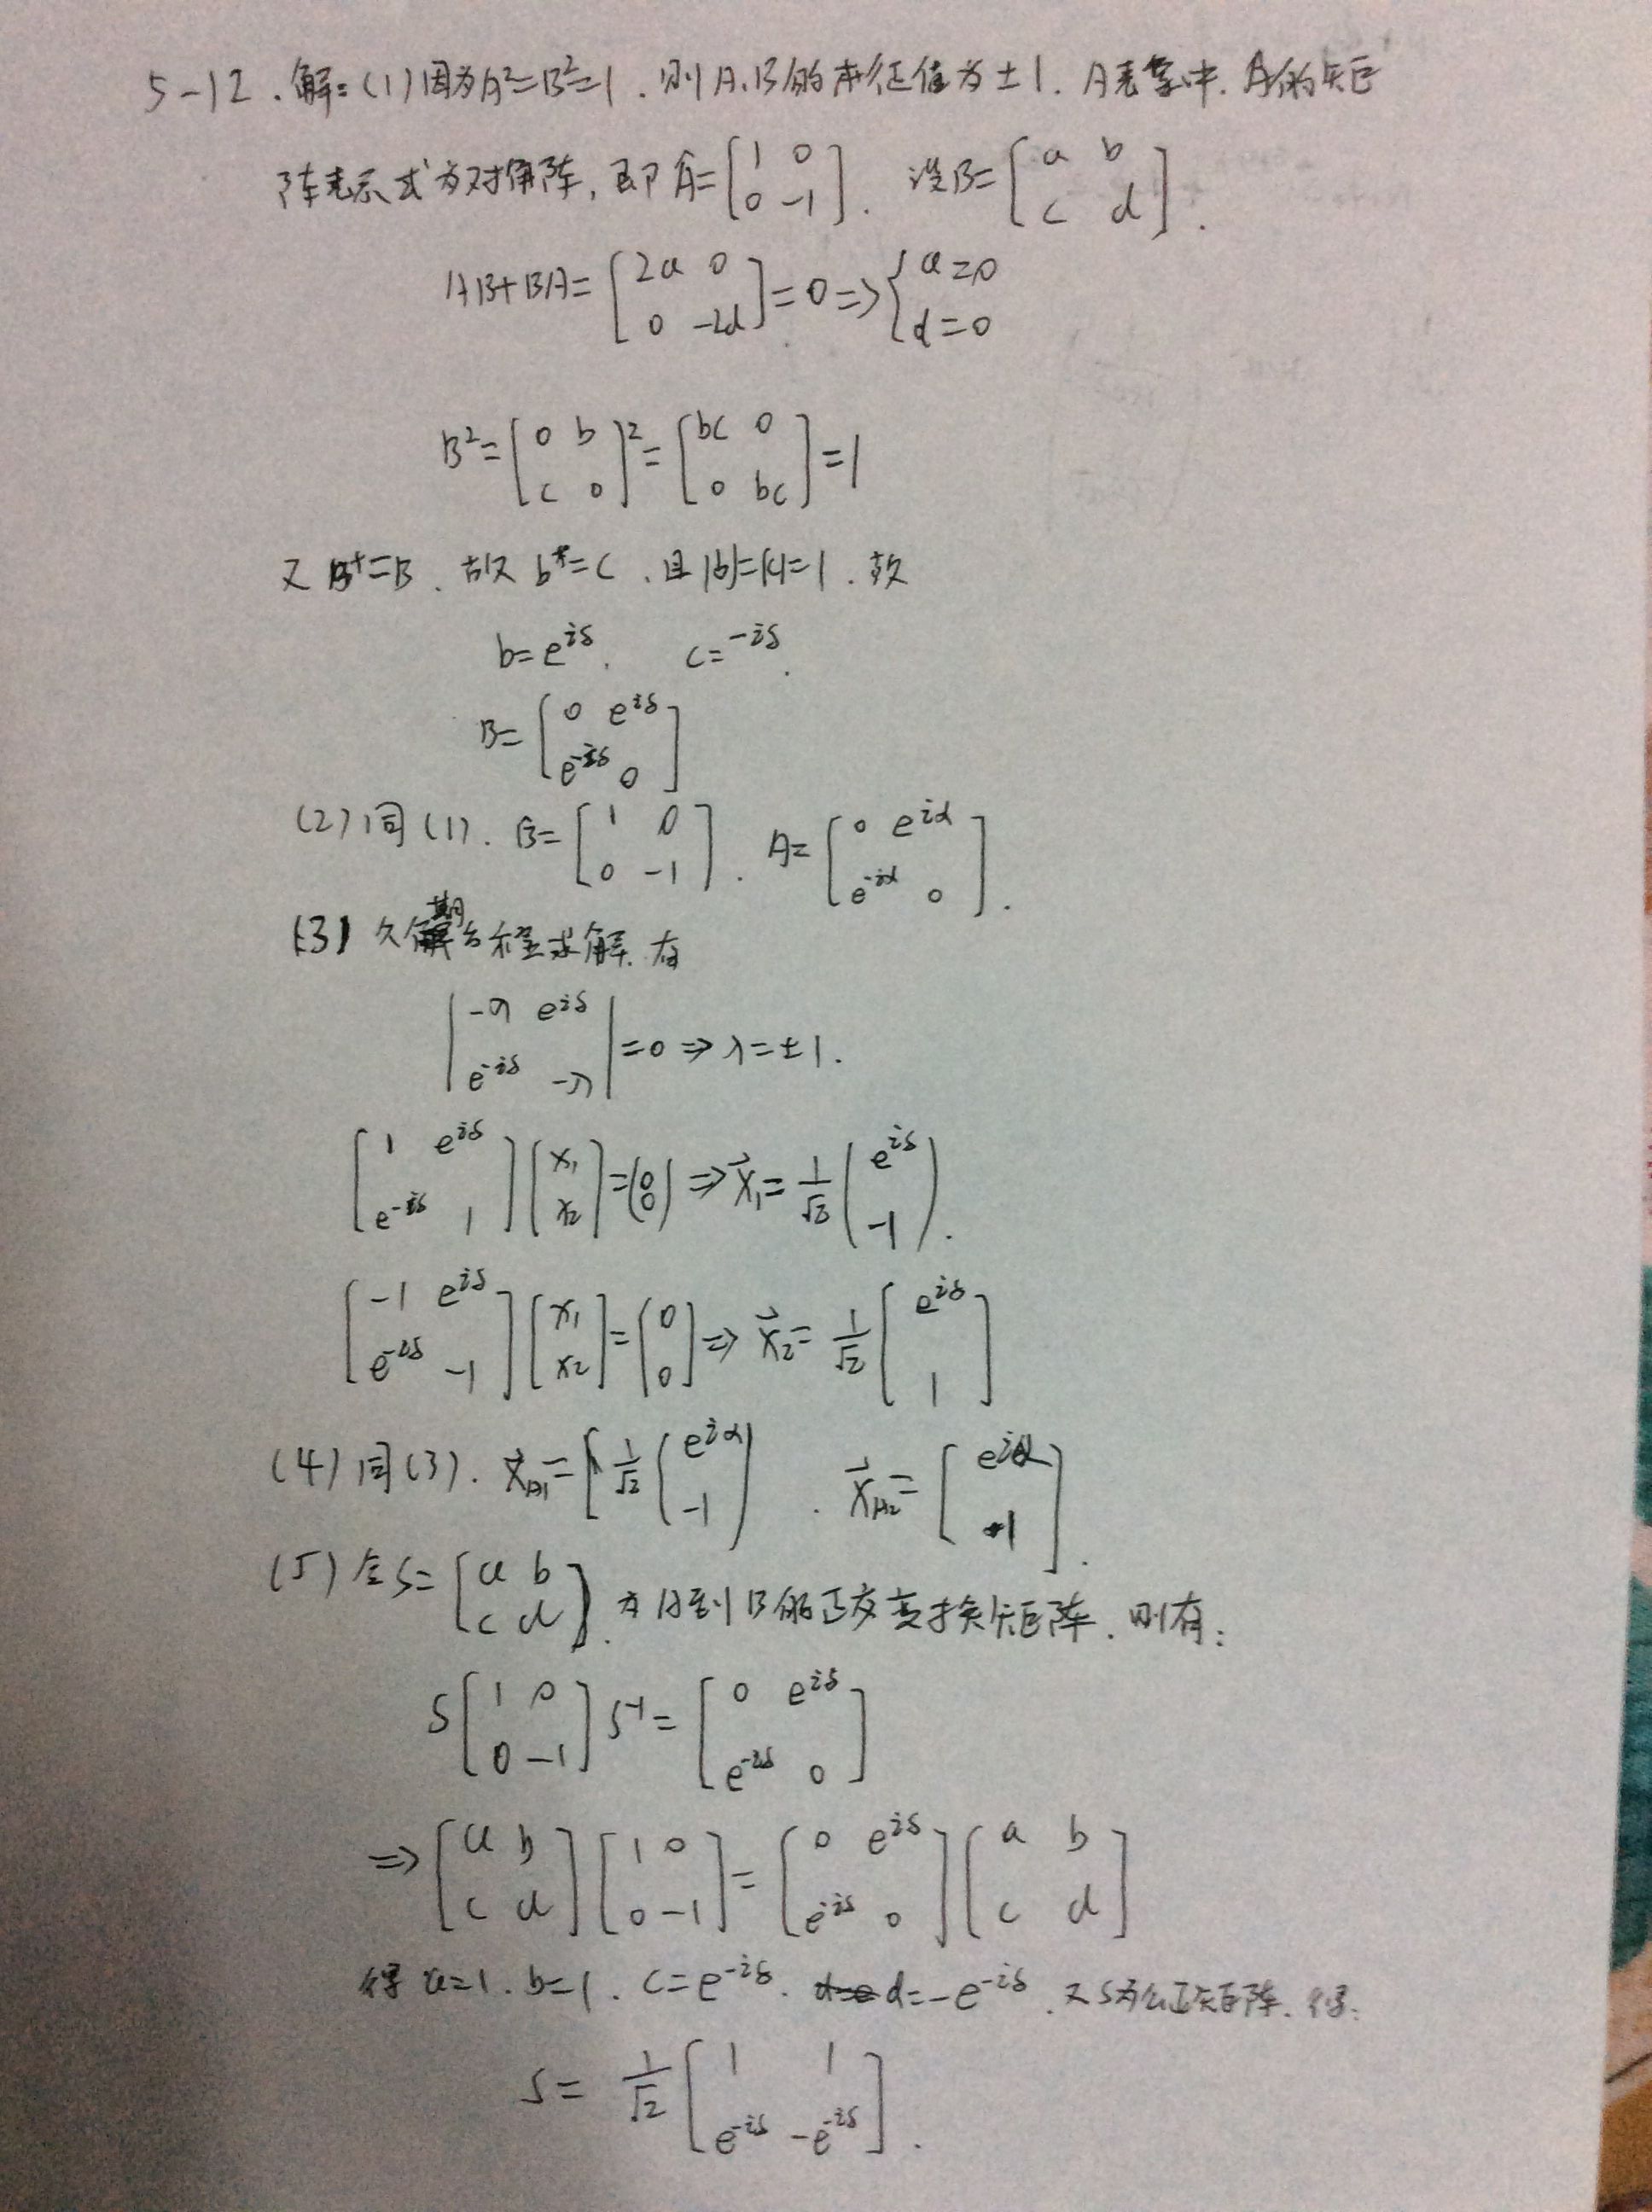 5-12. 解:(1)因为A²=B²=1. 则A、B的本征值为±1. A表象中. A的矩
阵表示式为对角阵, 即Â=[1 0; 0 -1]. 设B=[a b; c d].
AB+BA=[2a 0; 0 -2d]=0⇒{a=0 d=0
B²=[0 b; c 0]²=[bc 0; 0 bc]=1
又B⁺=B. 故又b*=c, 且|b|=|c|=1. 故
b=e^{iδ}. c=^{-iδ}.
B=[0 e^{iδ}; e^{-iδ} 0]
(2)同(1). B̂=[1 0; 0 -1]. A=[0 e^{iα}; e^{-iα} 0].
(3)久期方程求解. 有
|-λ e^{iδ}; e^{-iδ} -λ|=0⇒λ=±1.
[1 e^{iδ}; e^{-iδ} 1][x₁; x₂]=(0; 0)⇒x⃗₁=1/√2(e^{iδ}; -1).
[-1 e^{iδ}; e^{-iδ} -1][x₁; x₂]=[0; 0]⇒x⃗₂=1/√2[e^{iδ}; 1]
(4)同(3). x⃗_{A1}=[1/√2(e^{iα}; -1). x⃗_{A2}=[e^{iα}; 1].
(5)令S=[a b; c d]. 为A到B的正交变换矩阵. 则有:
S[1 0; 0 -1]S⁻¹=[0 e^{iδ}; e^{-iδ} 0]
⇒[a b; c d][1 0; 0 -1]=[0 e^{iδ}; e^{-iδ} 0][a b; c d]
得a=1. b=1. c=e^{-iδ}. d=-e^{-iδ}. 又S为幺正矩阵. 得:
S=1/√2[1 1; e^{-iδ} -e^{-iδ}].